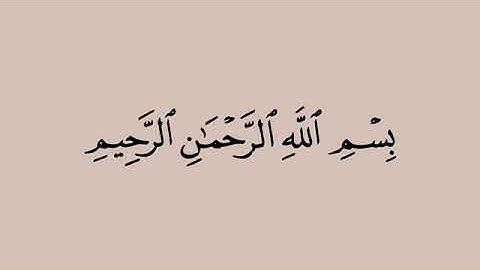 بِسۡمِ ٱللَّهِ ٱلرَّحۡمَٰنِ ٱلرَّحِيمِ